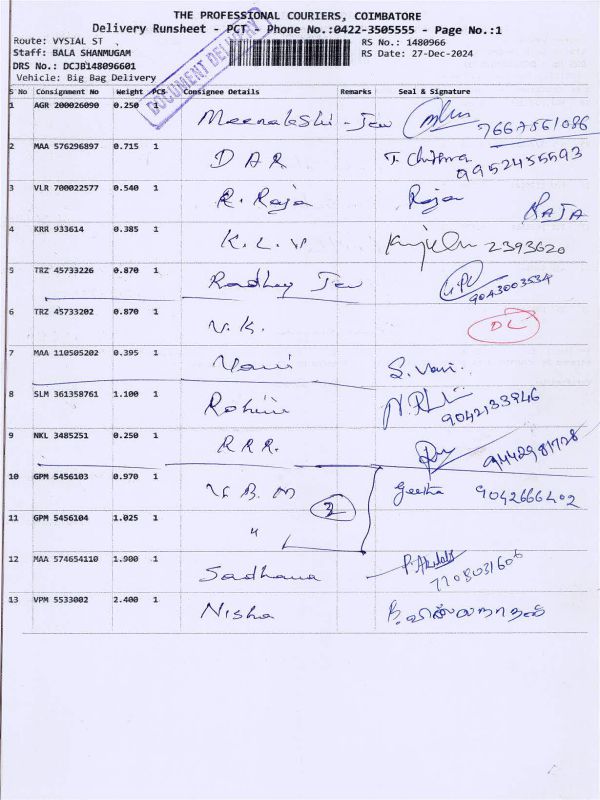 THE PROFESSIONAL COURIERS, COIMBATORE
Delivery Runsheet - PCT - Phone No.:0422-3505555 - Page No.:1
Route: VYSIAL ST RS No.: 1480966
Staff: BALA SHANMUGAM RS Date: 27-Dec-2024
DRS No.: DCJB148096601
Vehicle: Big Bag Delivery
DOCUMENT DELIVERY
S No Consignment No Weight PCS Consignee Details Remarks Seal & Signature
1 AGR 200026090 0.250 1 Meenakshi - Jew 7667561086
2 MAA 576296897 0.715 1 DAR T. Chithra 9952455593
3 VLR 700022577 0.540 1 R. Raja Raja RAJA
4 KRR 933614 0.385 1 K.L.V 2393620
5 TRZ 45733226 0.870 1 Radhay Jew 9043003534
6 TRZ 45733202 0.870 1 V.K. DL
7 MAA 110505202 0.395 1 Vani S. Vani.
8 SLM 361358761 1.100 1 Rohini 9042133946
9 NKL 3485251 0.250 1 R.R.R. 9442981728
10 GPM 5456103 0.970 1 V.B.M 2 Geetha 9042666402
11 GPM 5456104 1.025 1 "
12 MAA 574654110 1.900 1 Sadhana 7708031606
13 VPM 5533002 2.400 1 Nisha